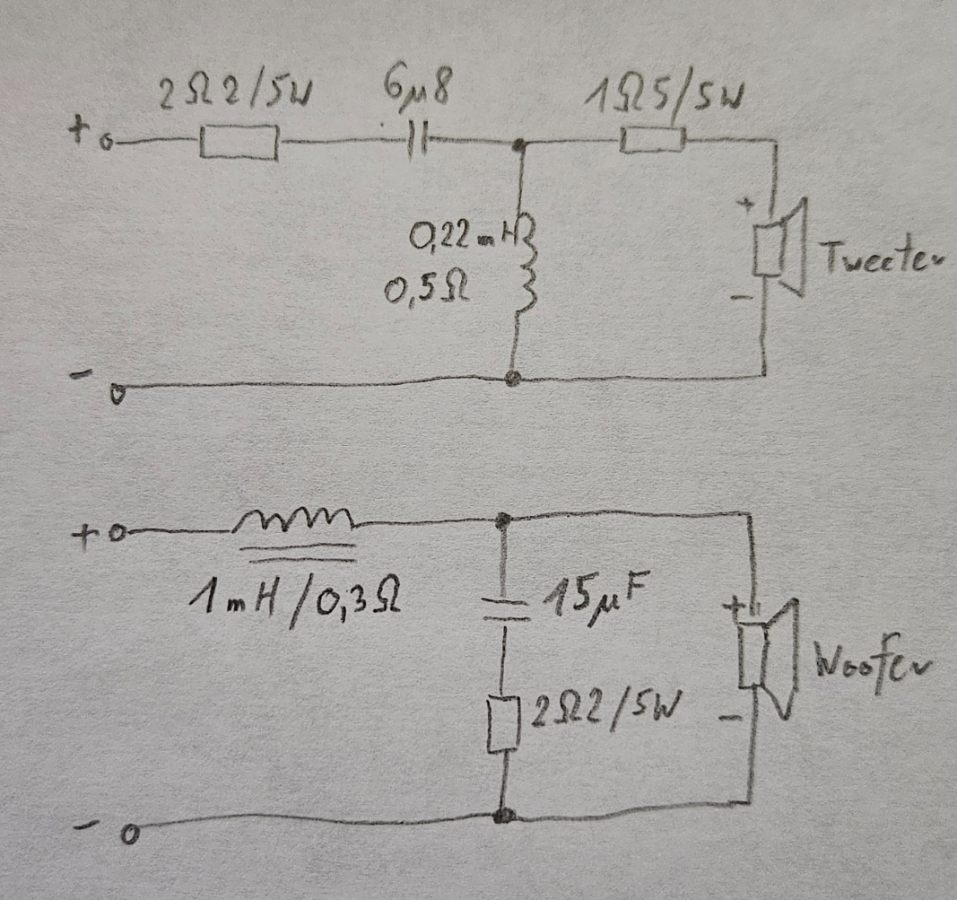 2Ω2/5W
6µ8
1Ω5/5W
+
+
0,22mH
0,5Ω
Tweeter
-
-
+
1mH/0,3Ω
15µF
+
2Ω2/5W
Woofer
-
-